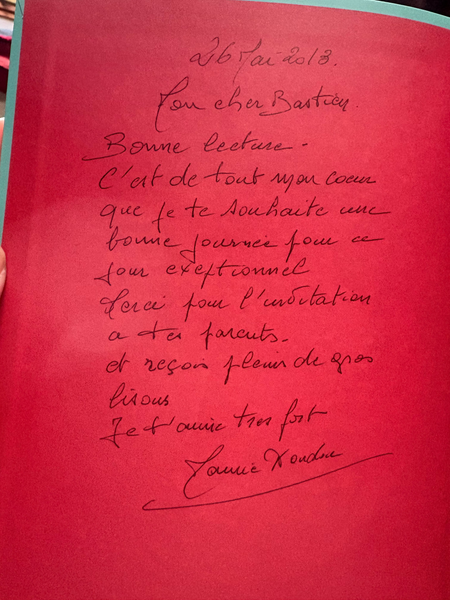 26 Mai 2013.
Mon cher Bastien
Bonne lecture -
C'est de tout mon coeur
que je te souhaite une
bonne journée pour ce
jour exeptionnel
Merci pour l'invitation
a tes parents.
et reçois plein de gros
bisous
Je t'aime tres fort